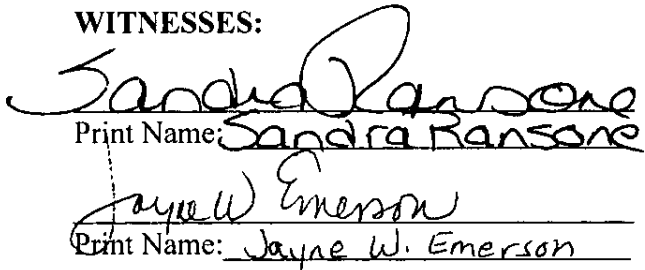 WITNESSES:
Sandra Ransone
Print Name: Sandra Ransone
Jayne W Emerson
Print Name: Jayne W. Emerson